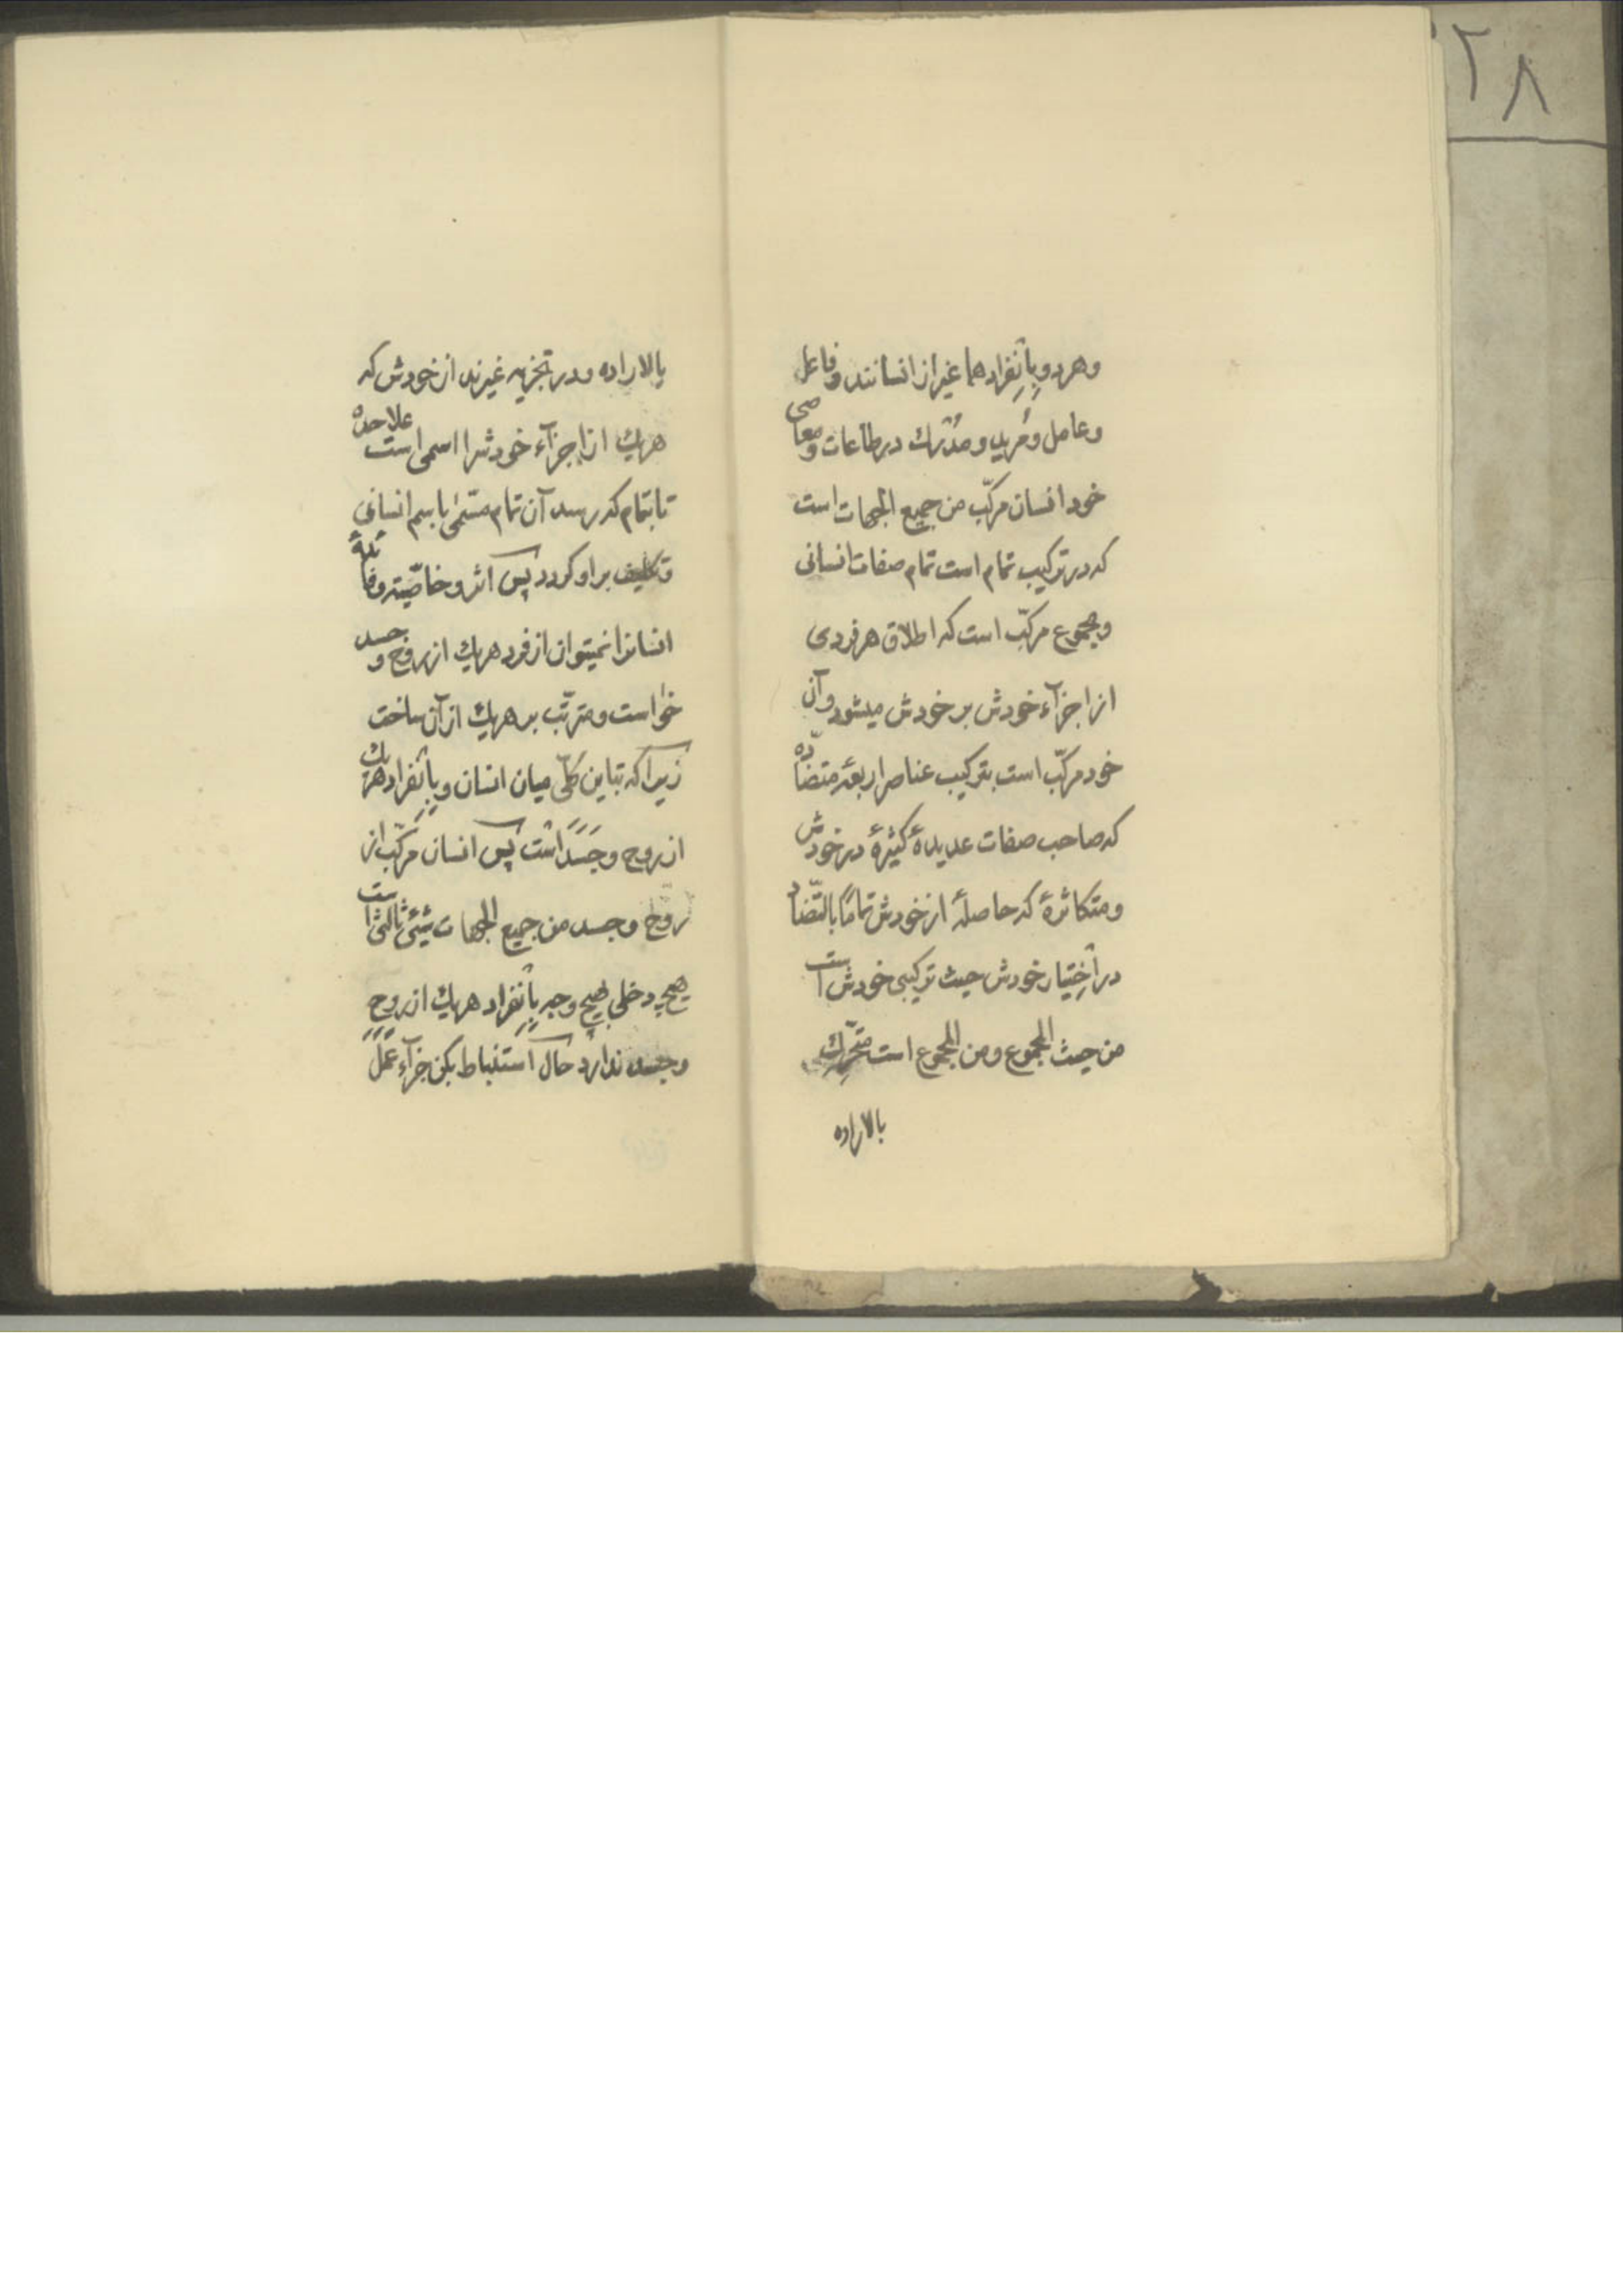 ۲۸
وهردو بِاِنْفِرادهما غیر از انسانند و فاعل
و عامل و مُرید و مُدرك در طاعات و معاصی
خود انسان مرکّب من جمیع الجهات است
که در ترکیب تمام است تمام صفات انسانی
و مجموع مرکّب است که اطلاق هر فردی
از اجزآء خودش بر خودش میشود و آن
خود مرکّب است بترکیب عناصر اربعهٔ متضادّه
که صاحب صفات عدیدهٔ کثیرهٔ در خودش
و متکاثرهٔ که حاصلهٔ از خودش تمامًا بالتّضاد
در اْخِتیار خودش حیث ترکیبی خودش است
من حیث المجموع و من المجموع است متحرّك
بالاراده
بالاراده و در تجزیه غیرند از خودش که
هریك از اجزآء خودشرا اسمی است علاحده
تا بتمام که رسد آن تمام مسمّی باسم انسانی
و تکلیف بر او گردد پس اثر و خاصّیته و فائدهٔ
انسانرا نمیتوان از فرد هریك از روح و جسد
خواست و مترتّب بر هریك از آن ساخت
زیرا که تباین کلّی میان انسان و بِاِنْفراد هریك
از روح و جَسَد است پس انسان مرکّب از
روح و جسد من جمیع الجهات شیئی ثالث است
هیچ دخلی بهیچ وجه بِاِنْفراد هریك از روح
و جسد ندارد حال اْستنباط بکن جزآءِ عَمَل